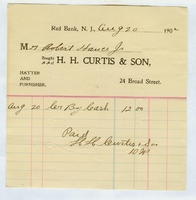 Red Bank, N. J., Aug 20 190
Mr Robert Hance Jr
Bought of
H. H. CURTIS & SON,
HATTER
AND
FURNISHER.
24 Broad Street.
Aug 20 Cr By Cash 12 00
Paid
H H Curtis & Son